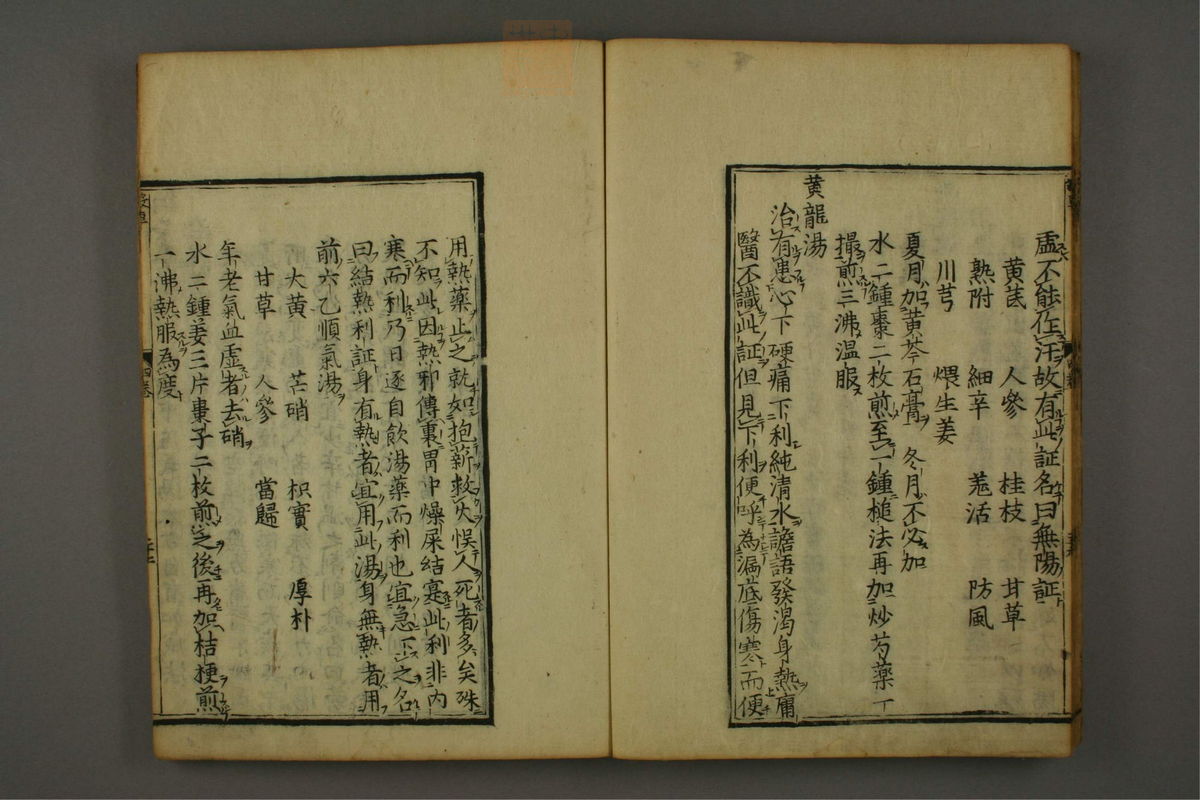 虚不能作汗故有此証名曰無陽証
黄芪 人參 桂枝 甘草
熟附 細辛 羌活 防風
川芎 煨生姜
夏月加黄芩石膏 冬月不必加
水二鍾棗二枚煎至一鍾槌法再加炒芍藥一
撮煎三沸温服
黄龍湯
治有患心下硬痛下利純清水譫語發渴身熱庸
醫不識此証但見下利便呼為漏底傷寒而便
用熱藥止之就如抱薪救火悞人死者多矣殊
不知此因熱邪傳裏胃中燥屎結寔此利非内
寒而利乃日逐自飲湯藥而利也宜急下之名
曰結熱利証身有熱者宜用此湯身無熱者用
前六乙順氣湯
大黄 芒硝 枳實 厚朴
甘草 人參 當歸
年老氣血虚者去硝
水二鍾姜三片棗子二枚煎之後再加桔梗煎
一沸熱服為度
四卷